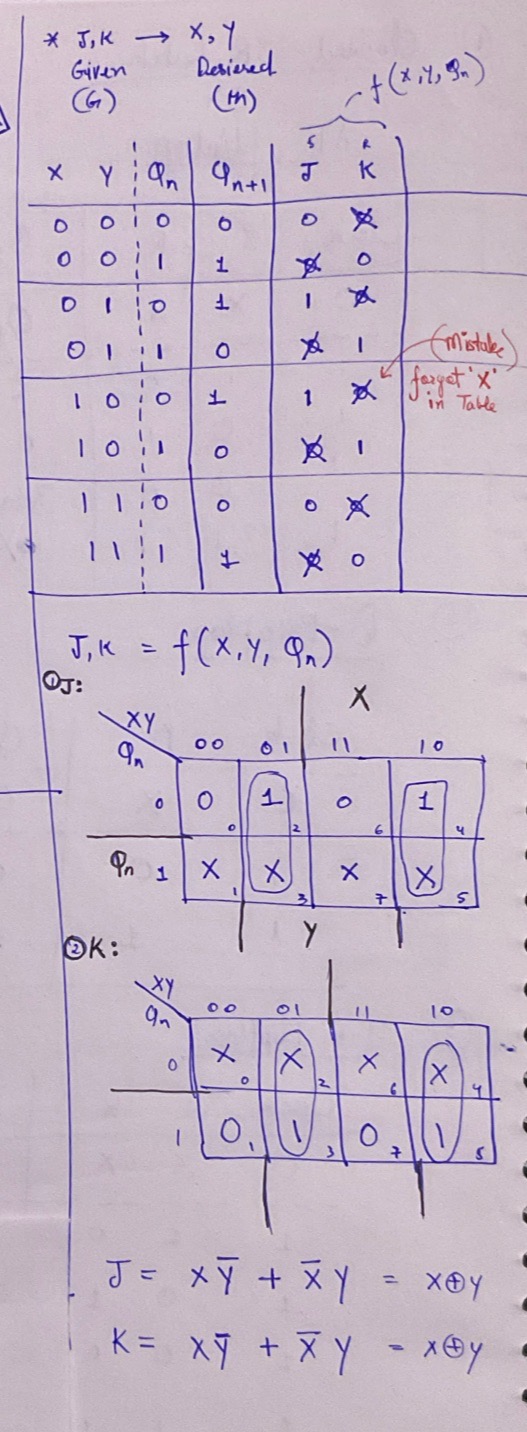 * J,K → X, Y
Given Desiered
(G) (m)
f(X,Y,Qn)
S R
X Y Qn Qn+1 J K
0 0 0 0 0 X
0 0 1 1 X 0
0 1 0 1 1 X
0 1 1 0 X 1
(Mistake)
1 0 0 1 1 X
forget 'X'
in Table
1 0 1 0 X 1
1 1 0 0 0 X
1 1 1 1 X 0
J,K = f(X,Y, Qn)
① J:
X
XY
Qn
00 01 11 10
0 0 1 0 1
0 2 6 4
Qn 1 X X X X
1 3 7 5
Y
② K:
XY
Qn
00 01 11 10
0 X X X X
0 2 6 4
1 0 1 0 1
1 3 7 5
J = XȲ + X̄Y = X⊕Y
K = XȲ + X̄Y = X⊕Y